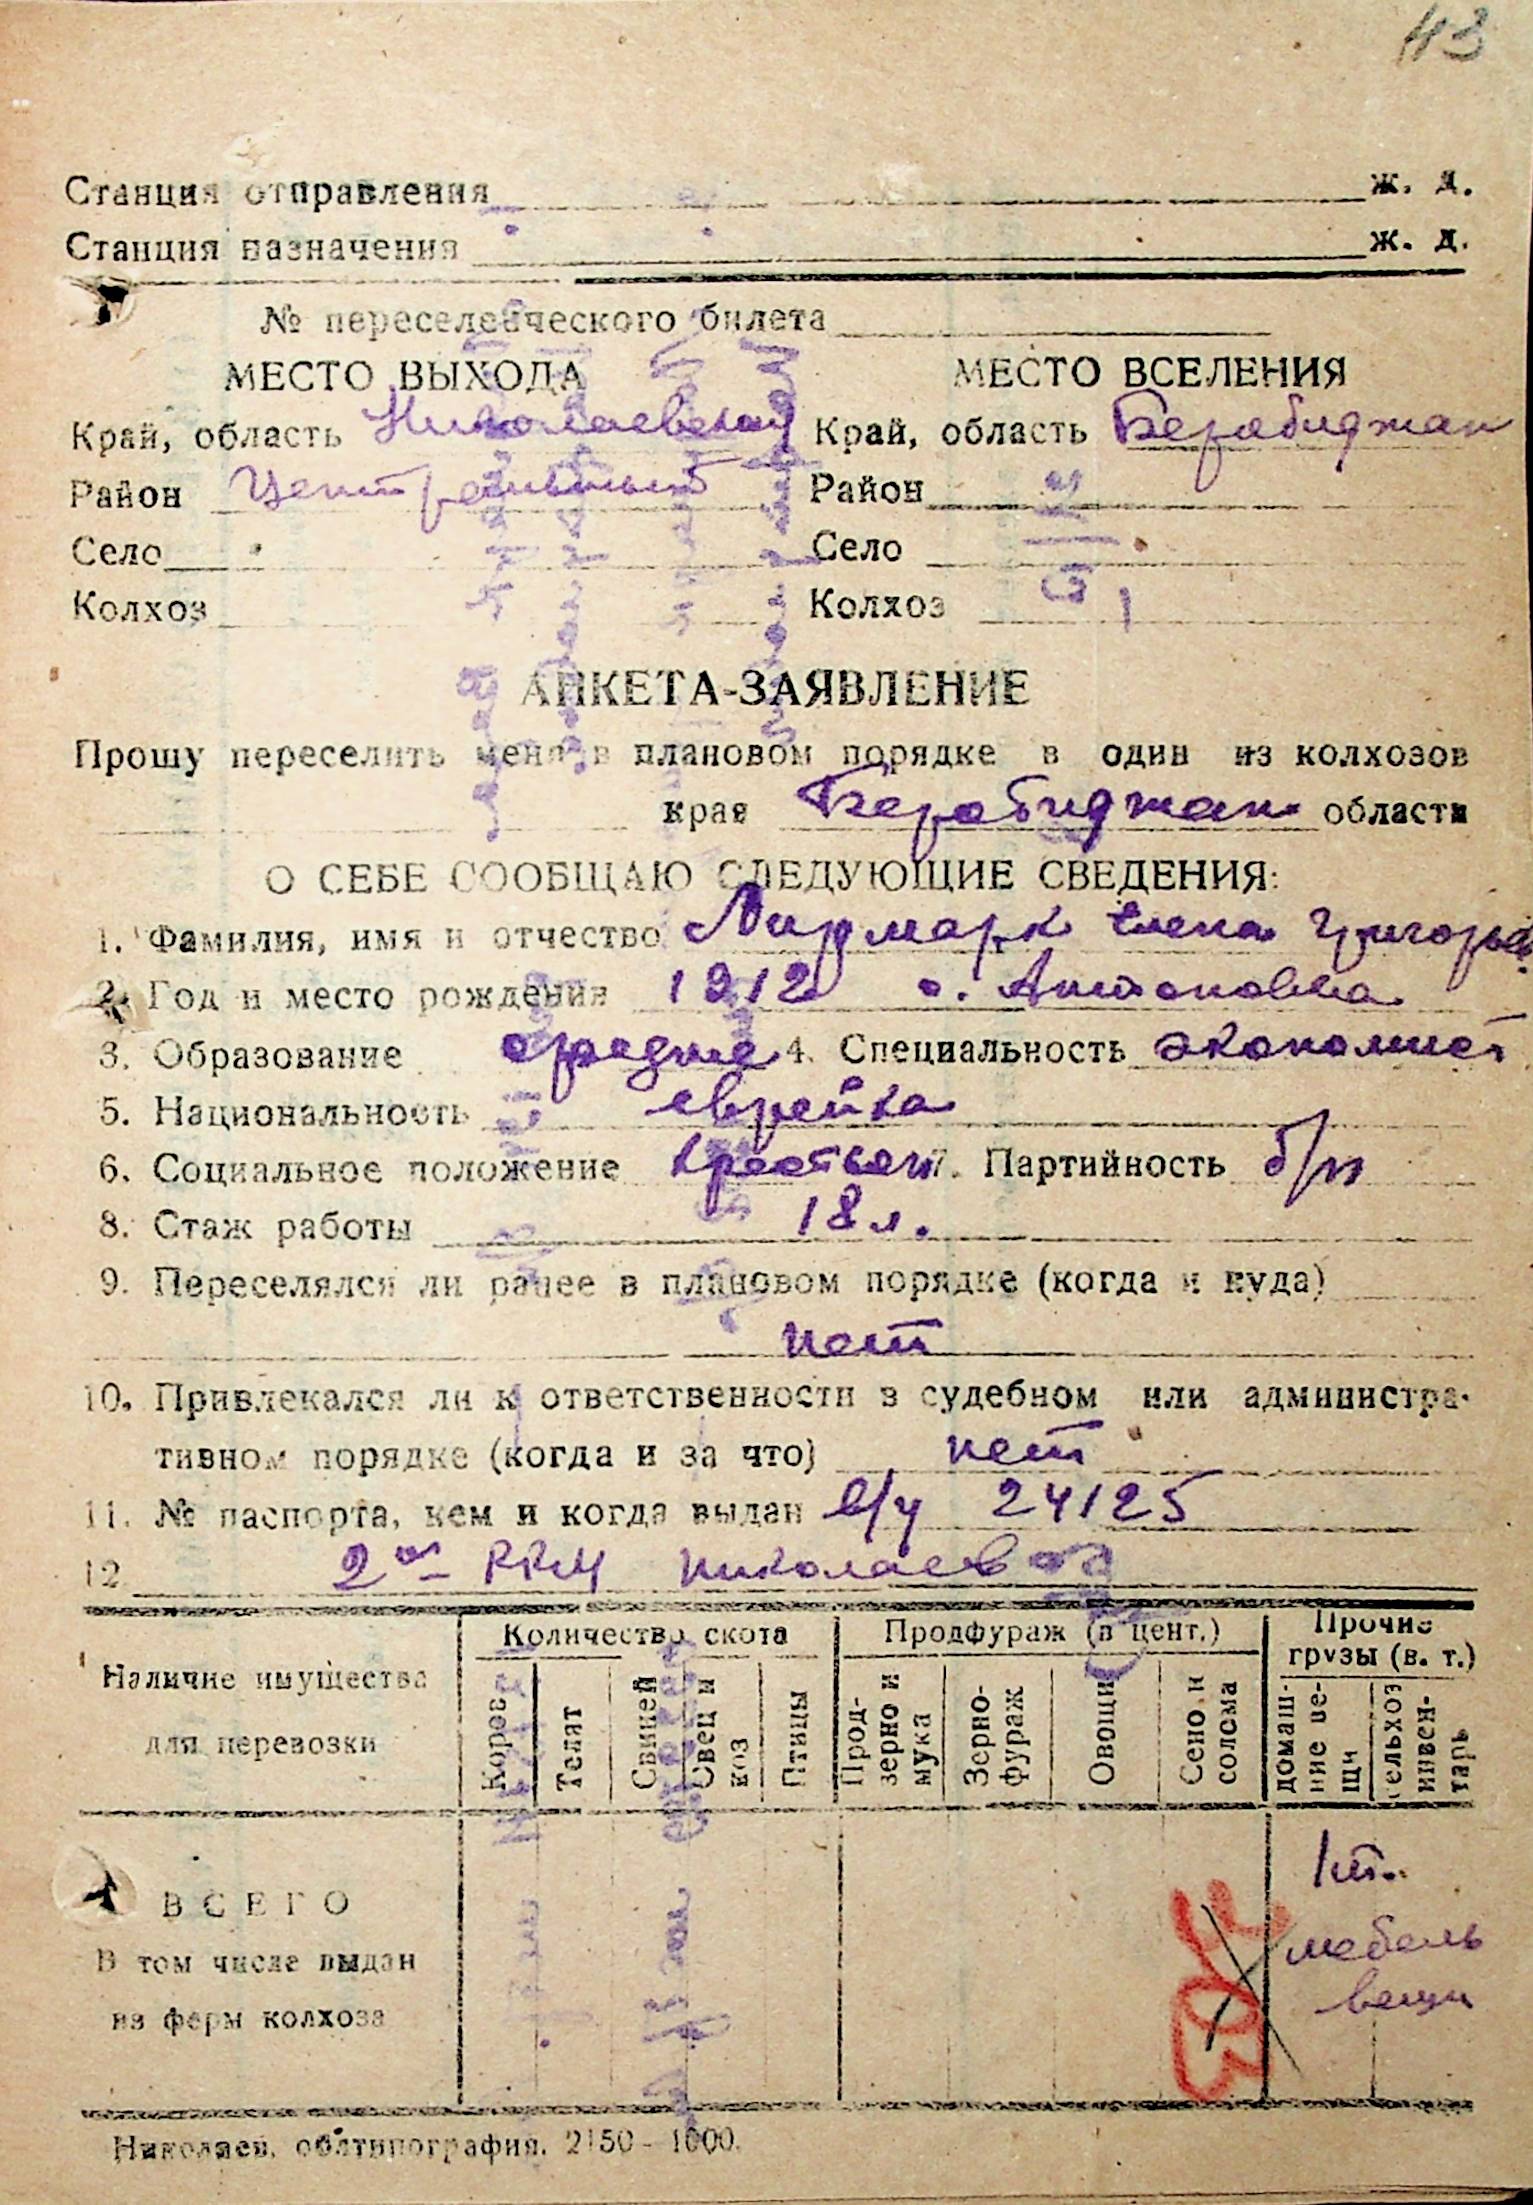 43
Станция отправления ж. д.
Станция назначения ж. д.
№ переселенческого билета
МЕСТО ВЫХОДА МЕСТО ВСЕЛЕНИЯ
Край, область Николаевская Край, область Беробиджан
Район Центральный Район
Село Село
Колхоз Колхоз
АНКЕТА-ЗАЯВЛЕНИЕ
Прошу переселить меня в плановом порядке в один из колхозов
края Беробиджан области
О СЕБЕ СООБЩАЮ СЛЕДУЮЩИЕ СВЕДЕНИЯ:
1. Фамилия, имя и отчество Елена Григорьев
2. Год и место рождения 1912 с. Антоновка
3. Образование средне 4. Специальность экономист
5. Национальность еврейка
6. Социальное положение крестьян 7. Партийность б/п
8. Стаж работы 18 л.
9. Переселялся ли ранее в плановом порядке (когда и куда)
нет
10. Привлекался ли к ответственности в судебном или администра-
тивном порядке (когда и за что) нет
11. № паспорта, кем и когда выдан в/у 24125
12 2ое РКМ Николаев
Наличие имущества для перевозки Количество скота Продфураж (в цент.) Прочие грузы (в. т.)
Коров Телят Свиней Овец и коз Птицы Прод-зерно и мука Зерно-фураж Овощи Сено и солома домаш-ние ве-щи сельхоз инвен-тарь
ВСЕГО 1 т.
В том числе выдан мебель
из ферм колхоза вещи
Николаев. облтипография. 2150 - 1000.